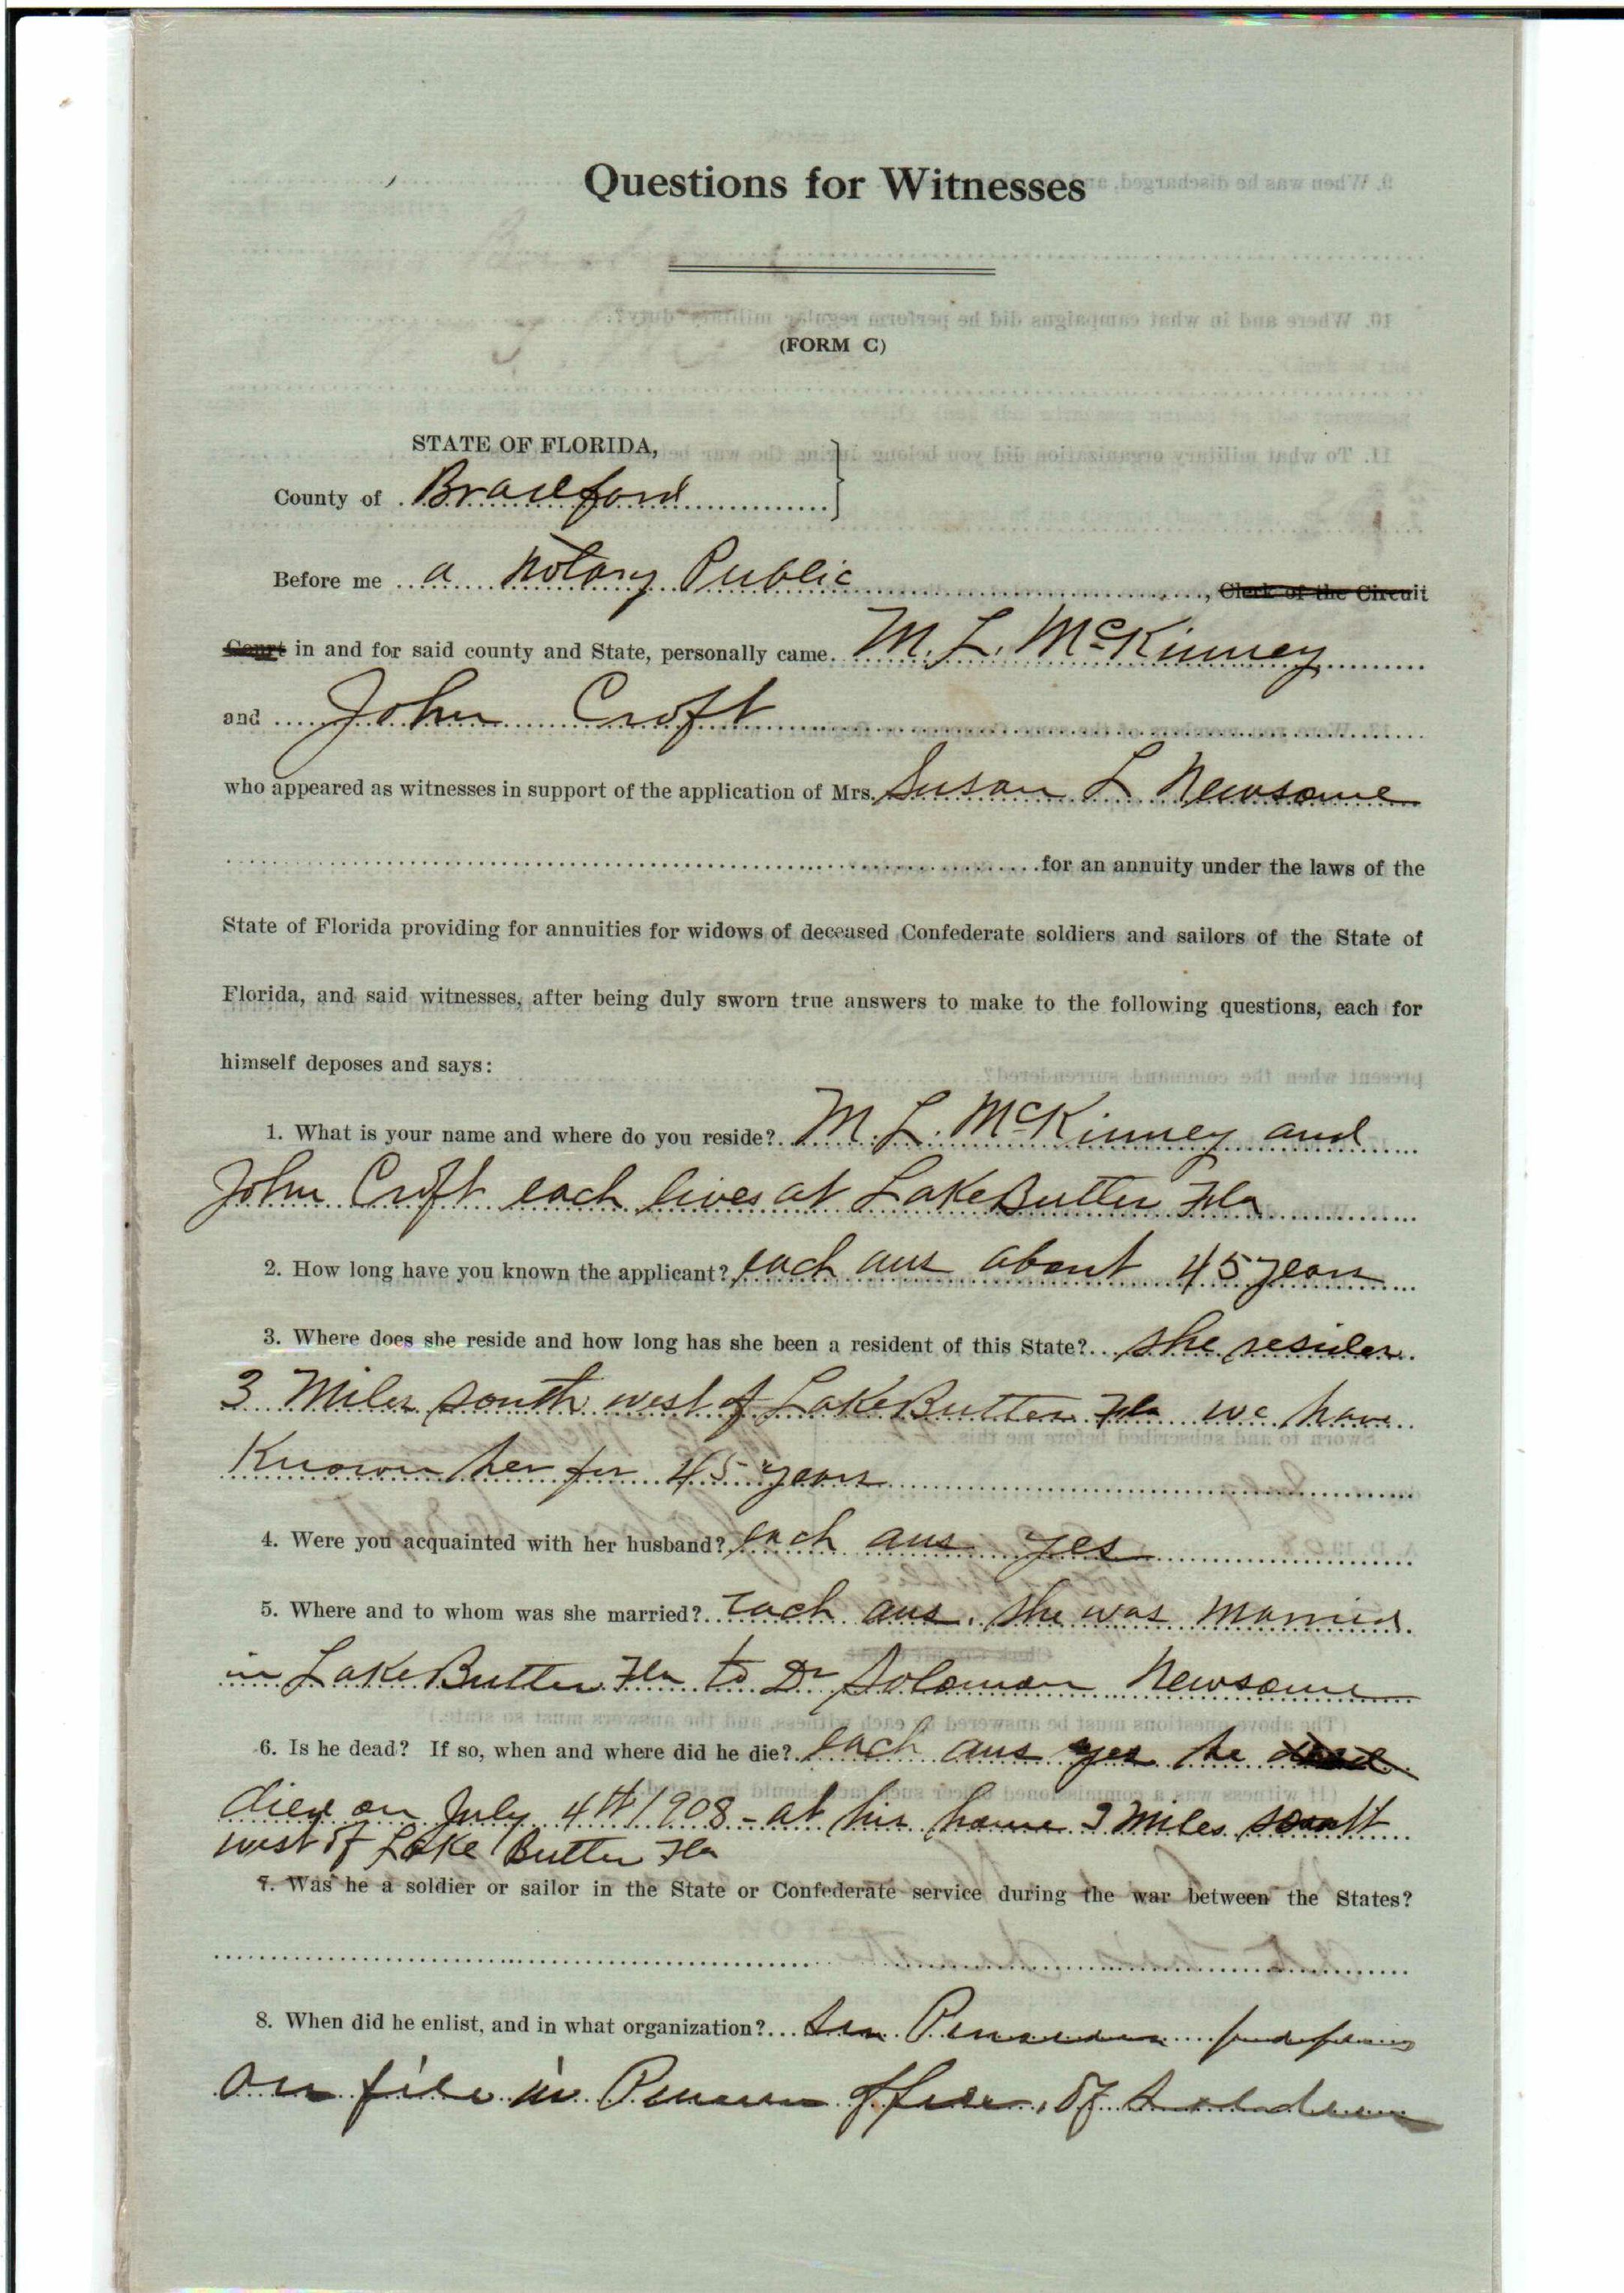 Questions for Witnesses
(FORM C)
STATE OF FLORIDA,
County of Bradford
Before me a Notary Public, Clerk of the Circuit
Court in and for said county and State, personally came M. L. McKinney
and John Croft
who appeared as witnesses in support of the application of Mrs. Susan L Newsome
for an annuity under the laws of the
State of Florida providing for annuities for widows of deceased Confederate soldiers and sailors of the State of
Florida, and said witnesses, after being duly sworn true answers to make to the following questions, each for
himself deposes and says:
1. What is your name and where do you reside? M. L. McKinney and
John Croft each lives at Lake Butler Fla
2. How long have you known the applicant? each ans about 45 years
3. Where does she reside and how long has she been a resident of this State? she resides
3 Miles south west of Lake Butler Fla we have
Known her for 45 years
4. Were you acquainted with her husband? each ans yes
5. Where and to whom was she married? Each ans. she was married
in Lake Butler Fla to Dr Soloman Newsome
6. Is he dead? If so, when and where did he die? each ans yes he
died on July 4th 1908 - at his home 3 Miles south
west of Lake Butler Fla
7. Was he a soldier or sailor in the State or Confederate service during the war between the States?
8. When did he enlist, and in what organization? See Pension
on file in Pension office. of